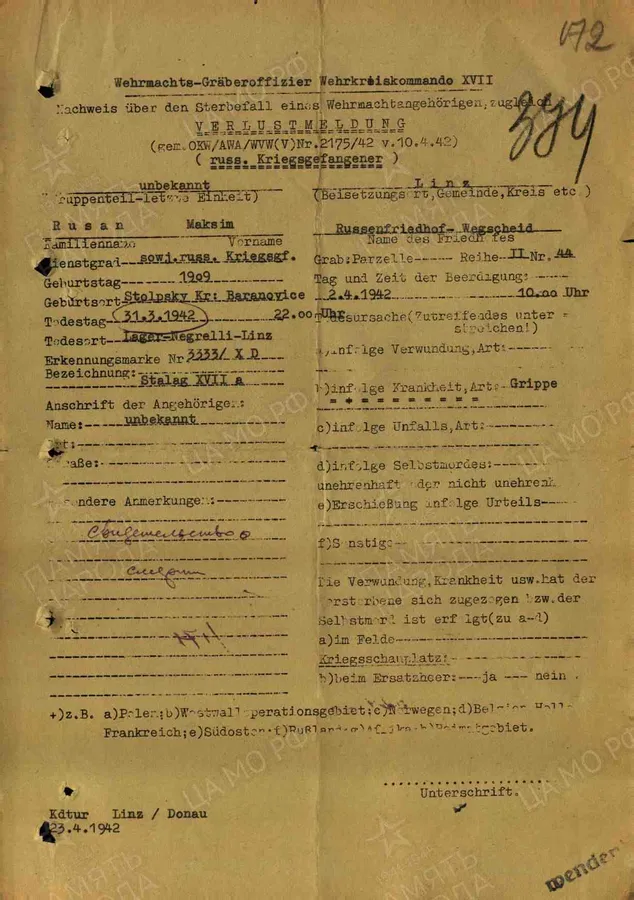 172
Wehrmachts-Gräberoffizier Wehrkreiskommando XVII
Nachweis über den Sterbefall eines Wehrmachtangehörigen, zugleich
VERLUSTMELDUNG
334
(gem.OKW/AWA/WVW(V)Nr.2175/42 v.10.4.42)
( russ. Kriegsgefangener )
unbekannt
Truppenteil-letzte Einheit)
Rusan Maksim
Familienname Vorname
Dienstgrad sowj.russ. Kriegsgf.
Geburtstag 1909
Geburtsort Stolpsky Kr: Baranovice
Todestag 31.3.1942 22.00 Uhr
Todesort Lager-Negrelli-Linz
Erkennungsmarke Nr 3333/ X D
Bezeichnung:
Stalag XVII a
Anschrift der Angehörigen:
Name: unbekannt
Ort:
Straße:
Besondere Anmerkungen:
Свидетельство о
смерти
Linz
(Beisetzungsort, Gemeinde, Kreis etc.)
Russenfriedhof- Wegscheid
Name des Friedhofes
Grab: Parzelle Reihe II Nr. 44
Tag und Zeit der Beerdigung:
2.4.1942 10.00 Uhr
Todesursache(Zutreffendes unter =
streichen!)
a)infolge Verwundung, Art:
b)infolge Krankheit, Art: Grippe
c)infolge Unfalls, Art:
d)infolge Selbstmordes:
unehrenhaft oder nicht unehrenh
e)Erschießung infolge Urteils
f)Sonstige
Die Verwundung, Krankheit usw. hat der
Verstorbene sich zugezogen bzw. der
Selbstmord ist erfolgt(zu a-d)
a)im Felde
Kriegsschauplatz:
b)beim Ersatzheer: ja nein .
+)z.B. a)Polen;b)Westwalloperationsgebiet;c)Norwegen;d)Belgien
Frankreich;e)Südosten;f)Rußland;g)Afrika;h)Heimatgebiet.
Unterschrift.
Kdtur Linz / Donau
23.4.1942
wenden